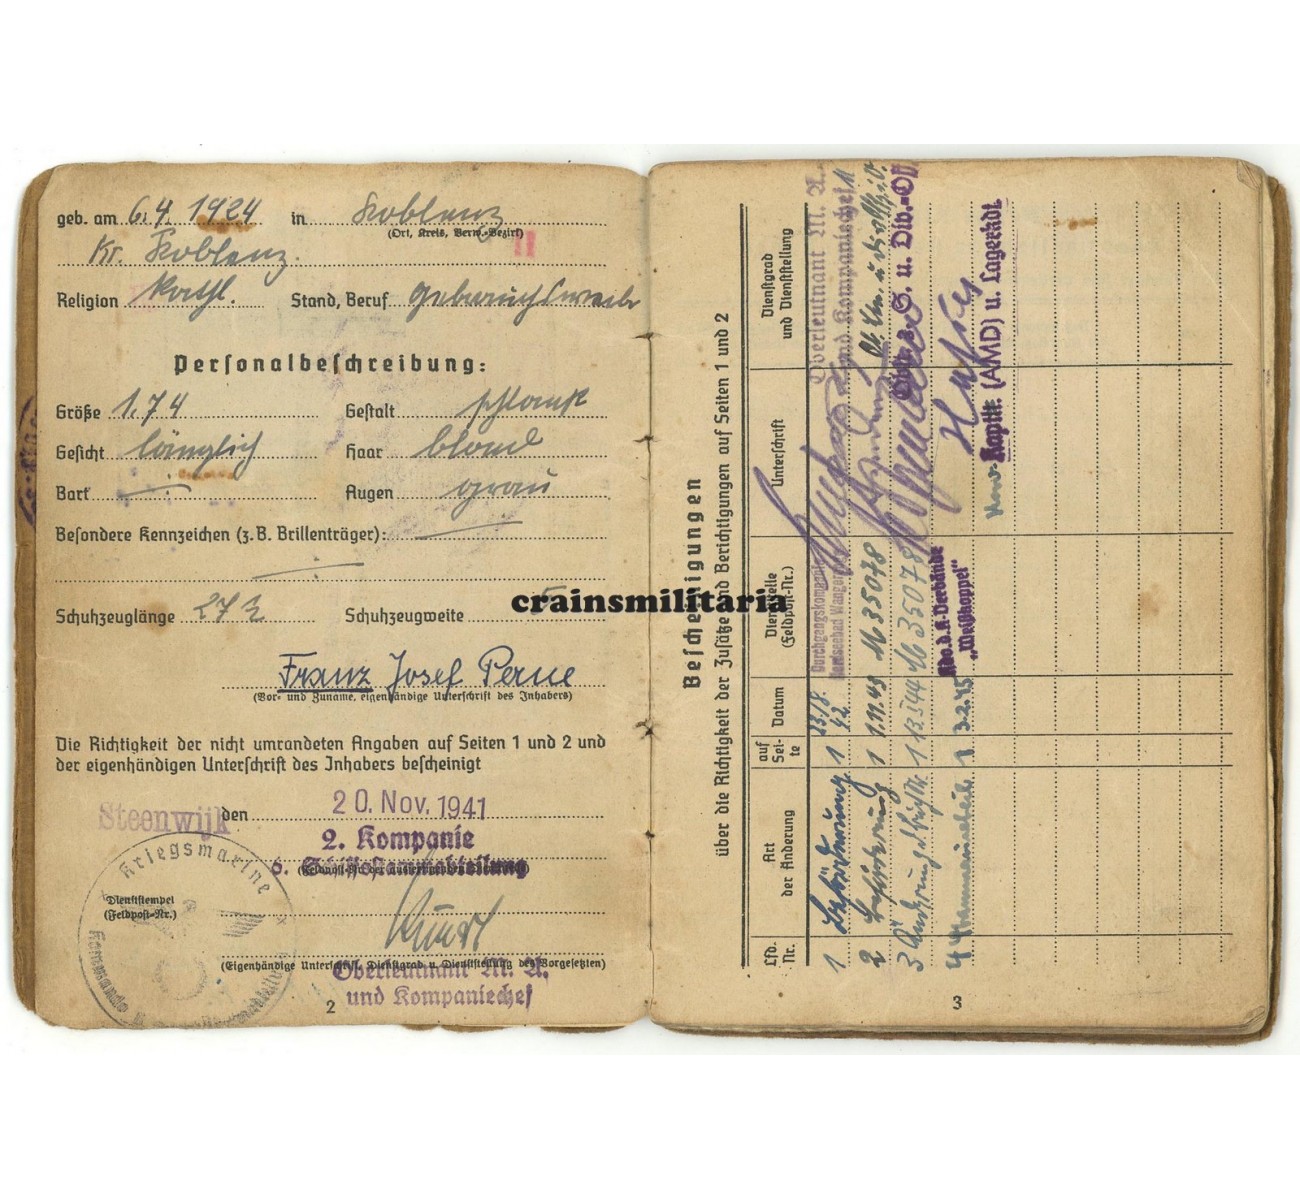 geb. am 6.4.1924 in Koblenz
(Ort, Kreis, Verw.-Bezirk)
Kr. Koblenz. II
Religion kath. Stand, Beruf
Personalbeschreibung:
Größe 1,74 Gestalt schlank
Gesicht länglich Haar blond
Bart — Augen grau
Besondere Kennzeichen (z. B. Brillenträger): —
—
Schuhzeuglänge 27½ Schuhzeugweite 5
crainsmilitaria
Franz Josef Perne
(Vor- und Zuname, eigenhändige Unterschrift des Inhabers)
Die Richtigkeit der nicht umrandeten Angaben auf Seiten 1 und 2 und
der eigenhändigen Unterschrift des Inhabers bescheinigt
Steenwijk den 20. Nov. 1941
2. Kompanie
6. Schiffsstammabteilung
Kriegsmarine
Dienststempel
(Feldpost-Nr.)
Kommando
(Eigenhändige Unterschrift, Dienstgrad u. Dienststellung des Vorgesetzten)
Oberleutnant M. A.
und Kompaniechef
2
Bescheinigungen
über die Richtigkeit der Zusätze und Berichtigungen auf Seiten 1 und 2
Lfd. Nr.
Art der Änderung
auf Seite
Datum
Dienststelle (Feldpost-Nr.)
Unterschrift
Dienstgrad und Dienststellung
1 Beförderung 1 23/8. 42 Oberleutnant M. A.
und Kompaniechef
2 Beförderung 1 1.11.43 M 35078
3 1 M 35078 u. Div.-Off
4 1 3.2.45 Kdo. d. K-Verbände
"Weißkoppel"
Kaptlt. (AMD) u. Lagerkdt
3